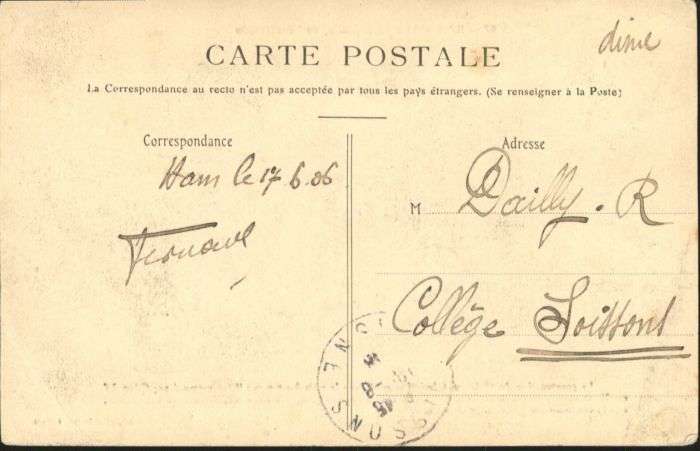 dime
CARTE POSTALE
La Correspondance au recto n'est pas acceptée par tous les pays étrangers. (Se renseigner à la Poste)
Correspondance
Ham le 17 6.06
Fernand
Adresse
M Dailly. R
Collège Soissons
SOISSONS